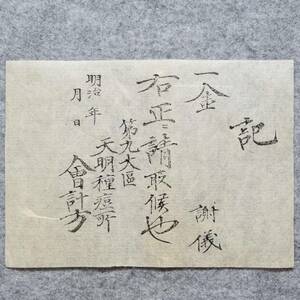 記
一金
謝儀
右正ニ請取候也
第九大區
天明種痘所
會計方
明治 年
月 日